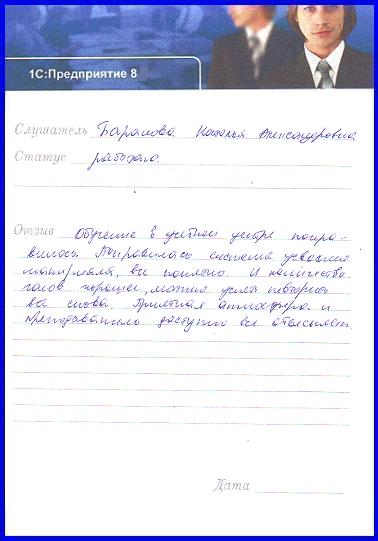 1С:Предприятие 8
Слушатель Баранова Наталья Александровна
Статус работаю
Отзыв Обучение в учебном центре понра-
вилось. Понравилась система усвоения
материала, все понятно. И количество
часов хорошее, можно успеть повторить
все снова. Приятная атмосфера и
преподаватель доступно все объясняет.
Дата